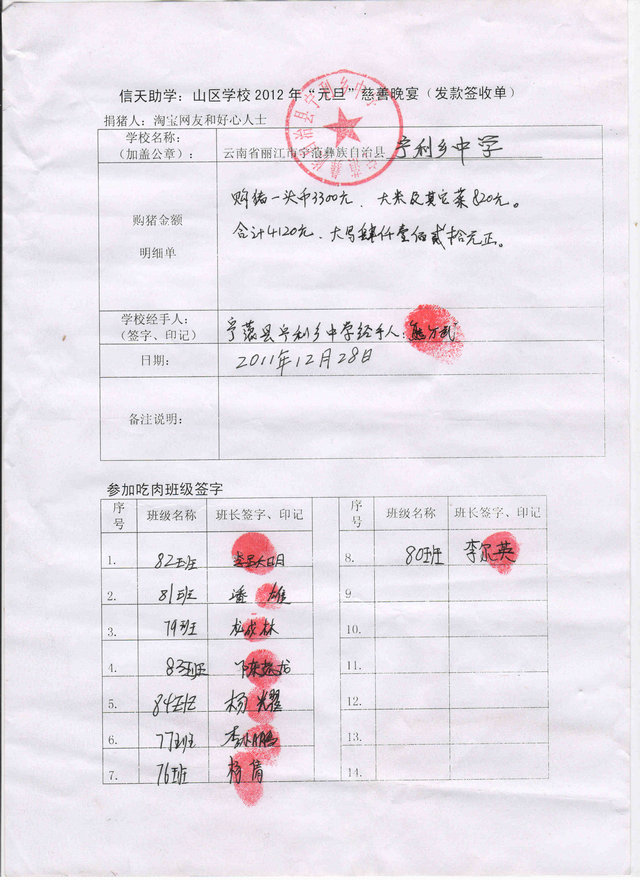 信天助学：山区学校2012年“元旦”慈善晚宴（发款签收单）
捐猪人：淘宝网友和好心人士
学校名称：
（加盖公章）：
云南省丽江市宁蒗彝族自治县 宁利乡中学
购猪金额
明细单
购猪一头币3300元、大米及其它菜820元。
合计4120元、大写肆仟壹佰贰拾元正。
学校经手人：
（签字、印记）
宁蒗县宁利乡中学经手人：
日期：
2011年12月28日
备注说明：
参加吃肉班级签字
序号 班级名称 班长签字、印记
1. 82班
2. 81班 潘雄
3. 79班 龙成林
4. 83班
5. 84班 杨耀
6. 77班
7. 76班 杨倩
序号 班级名称 班长签字、印记
8. 80班 李尔英
9.
10.
11.
12.
13.
14.